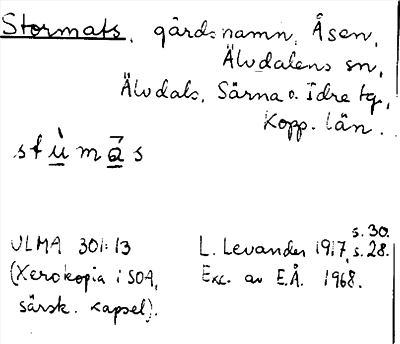 Stormats, gårdsnamn, Åsen,
Älvdalens sn,
Älvdals, Särna o. Idre tg,
Kopp. län.
stù̱mā̱s
ULMA 301:13
(Xerokopia i SOA,
särsk. kapsel).
s. 30.
L. Levander 1917, s. 28.
Exc. av E.Å. 1968.